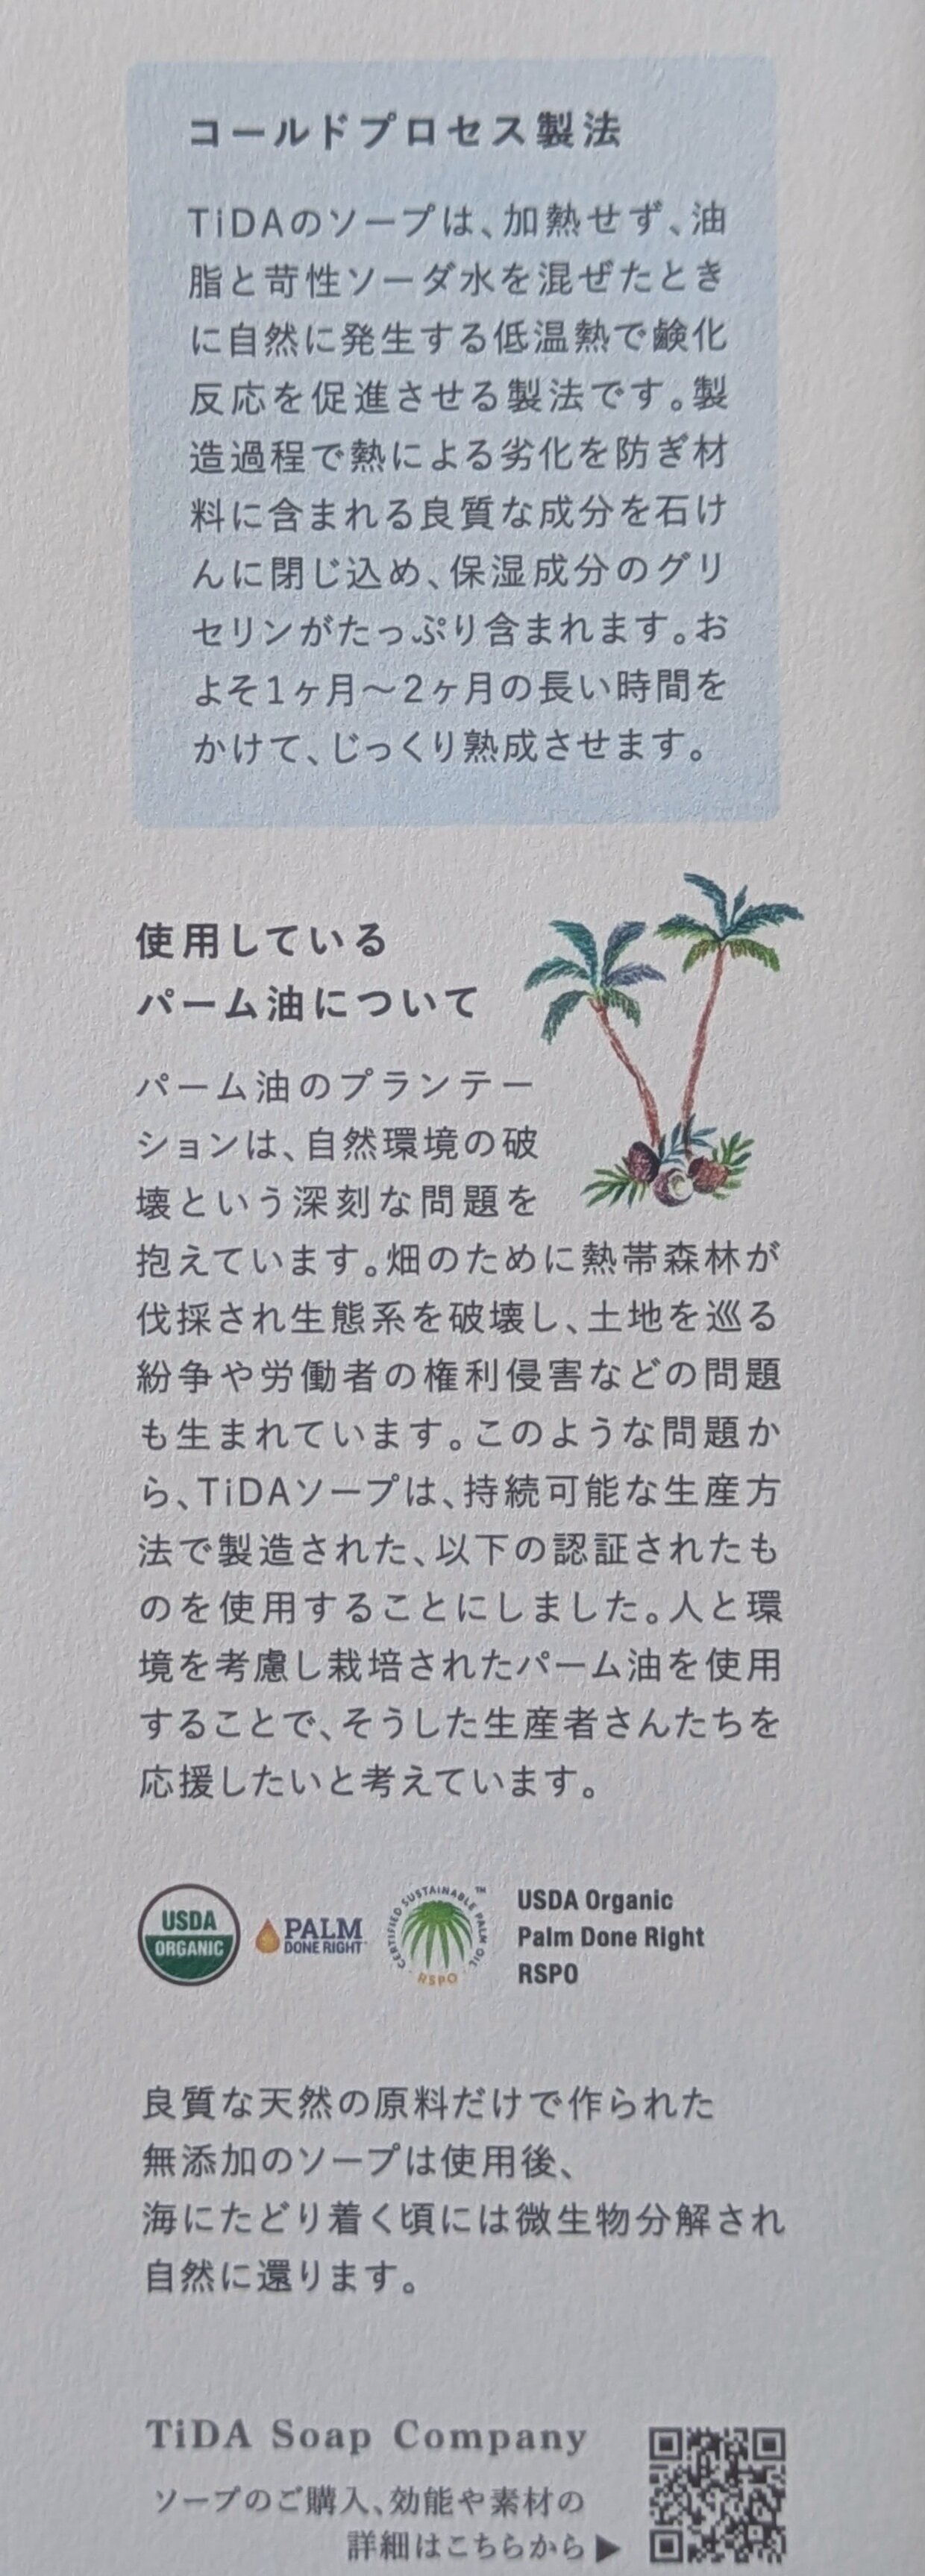 コールドプロセス製法
TiDAのソープは、加熱せず、油
脂と苛性ソーダ水を混ぜたとき
に自然に発生する低温熱で鹸化
反応を促進させる製法です。製
造過程で熱による劣化を防ぎ材
料に含まれる良質な成分を石け
んに閉じ込め、保湿成分のグリ
セリンがたっぷり含まれます。お
よそ1ヶ月〜2ヶ月の長い時間を
かけて、じっくり熟成させます。
使用している
パーム油について
パーム油のプランテー
ションは、自然環境の破
壊という深刻な問題を
抱えています。畑のために熱帯森林が
伐採され生態系を破壊し、土地を巡る
紛争や労働者の権利侵害などの問題
も生まれています。このような問題か
ら、TiDAソープは、持続可能な生産方
法で製造された、以下の認証されたも
のを使用することにしました。人と環
境を考慮し栽培されたパーム油を使用
することで、そうした生産者さんたちを
応援したいと考えています。
USDA
ORGANIC
PALM
DONE RIGHT
CERTIFIED SUSTAINABLE PALM OIL ™
RSPO
USDA Organic
Palm Done Right
RSPO
良質な天然の原料だけで作られた
無添加のソープは使用後、
海にたどり着く頃には微生物分解され
自然に還ります。
TiDA Soap Company
ソープのご購入、効能や素材の
詳細はこちらから▶